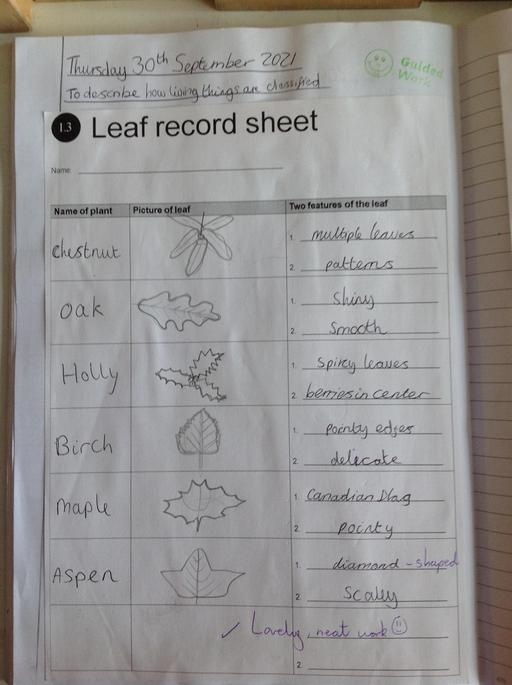 Thursday 30th September 2021
Guided
Work
To describe how living things are classified
1.3 Leaf record sheet
Name:
Name of plant Picture of leaf Two features of the leaf
Chestnut
1. multiple leaves
2. patterns
Oak
1. Shiny
2. Smooth
Holly
1. Spikey leaves
2. berries in center
Birch
1. pointy edges
2. delicate
Maple
1. Canadian flag
2. pointy
Aspen
1. diamond - shaped
2. Scaley
✓ Lovely, neat work
2.